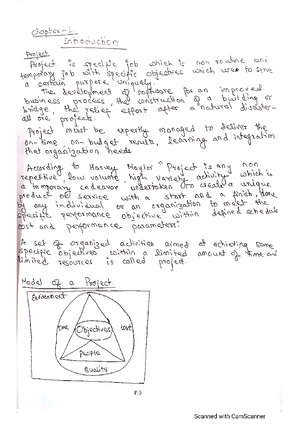 Chapter-1
Introduction
Project
Project is specific job which is non routine and
temporary job with specific objectives which used to serve
a certain purpose uniquely.
The development of software for an improved
business process, the construction of a building or
bridge, the relief effort after a natural disaster-
all are projects.
Project must be expertly managed to deliver the
on-time, on-budget results, learning and integration
that organization needs
According to Harvey Maylor "Project is any non
repetitive, low volume, high variety activity which is
a temporary endeavor undertaken to create a unique
product or service with a start and a finish, done
by any individual or an organization to meet the
specific performance objective within defined schedule
cost and performance parameter.
A set of organized activities aimed at achieving some
specific objectives within a limited amount of time and
limited resources is called project.
Model of a Project
Environment
time
Objectives
cost
People
quality
P.5
Scanned with CamScanner